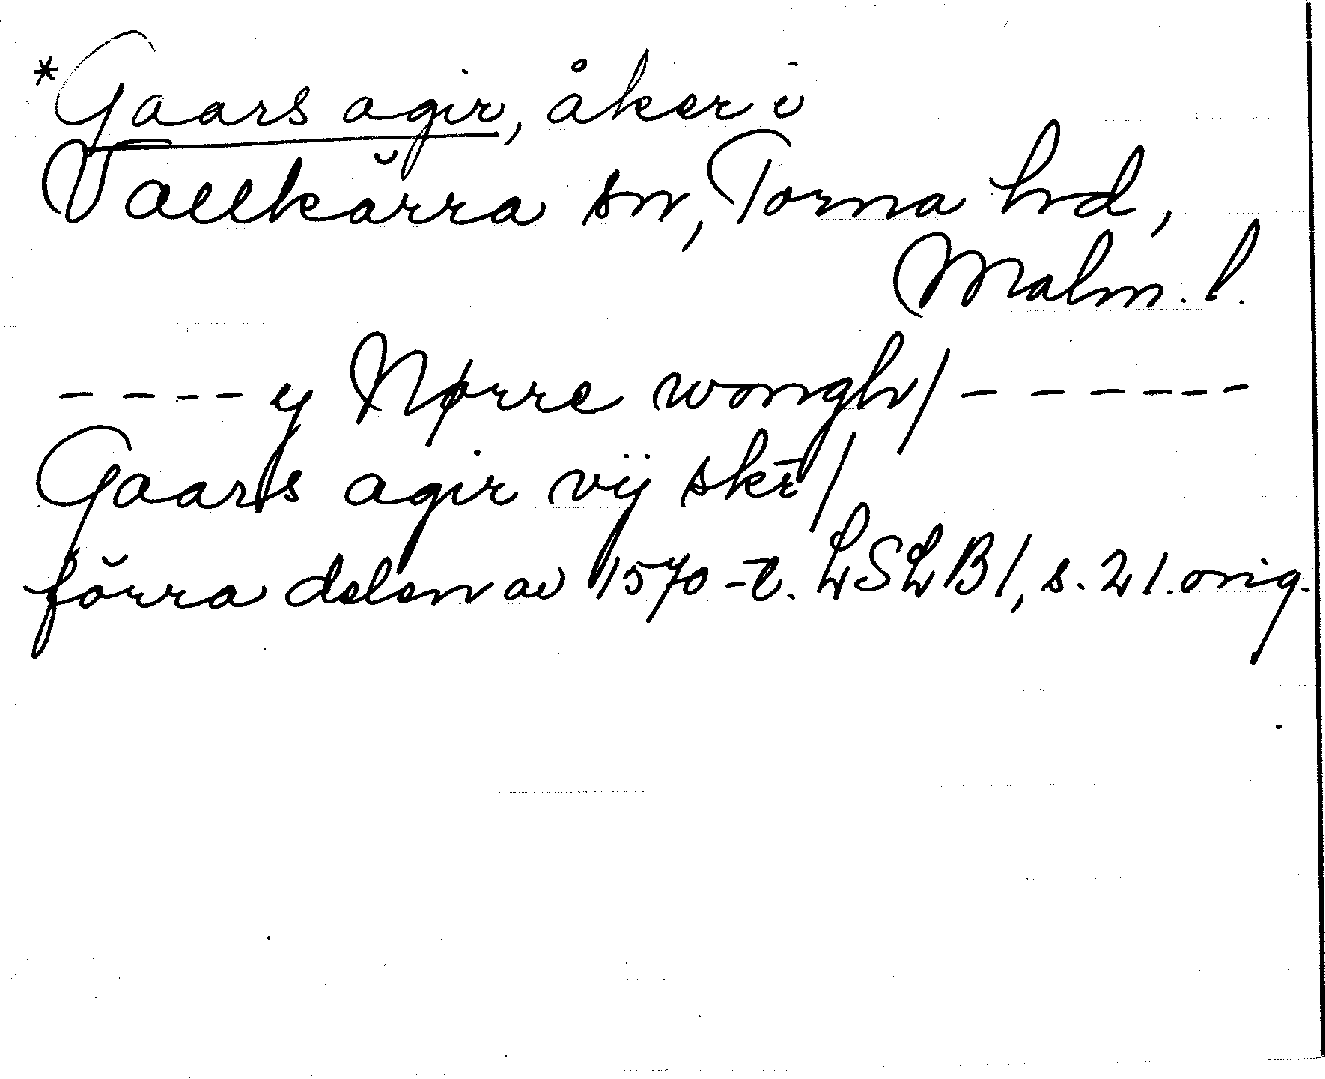 *Gaars agir, åker i
Vallkärra sn, Torna hd,
Malm. l.
- - - - y Nørre wongh/ - - - - - -
Gaars agir vij skē/
förra delen av 1570-t. LSLB1, s. 21. orig.